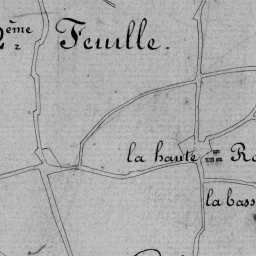 2ème Feuille.
la haute
la bass